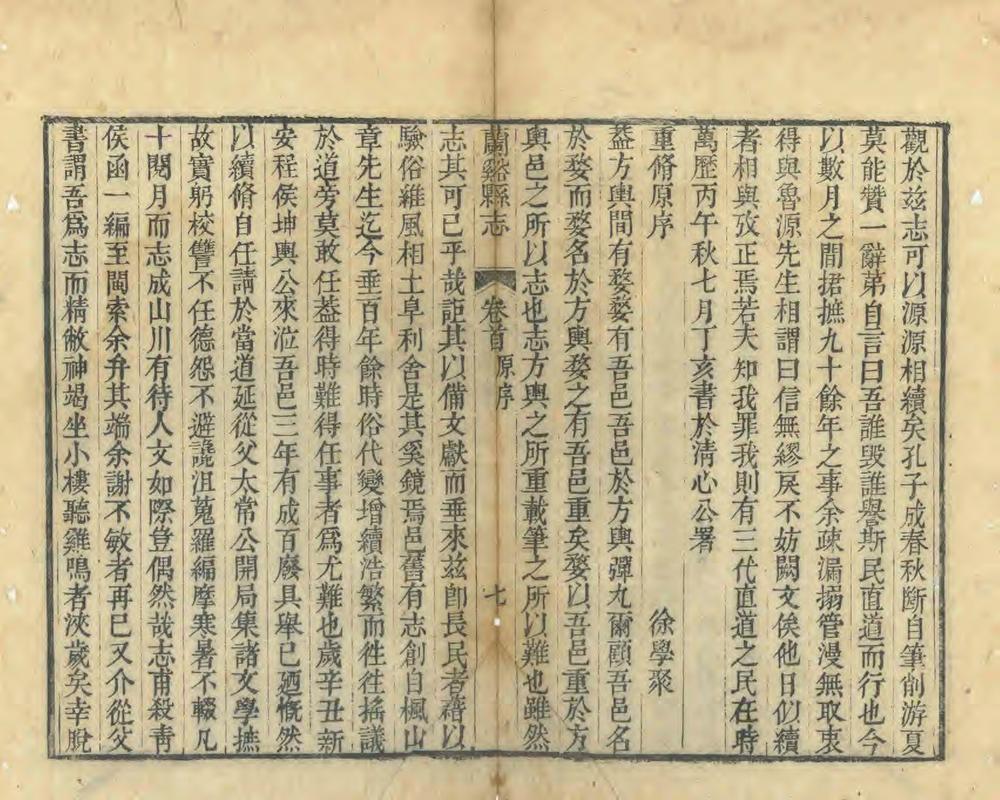 觀於兹志可以源源相續矣孔子成春秋斷自筆削游夏
莫能贊一辭第自言曰吾誰毀誰譽斯民直道而行也今
以數月之間捃摭九十餘年之事余疎漏搦管漫無取衷
得與魯源先生相謂曰信無繆戾不妨闕文俟他日似續
者相與攷正焉若夫知我罪我則有三代直道之民在時
萬歷丙午秋七月丁亥書於清心公署
重脩原序 徐學聚
葢方輿間有婺婺有吾邑吾邑於方輿彈丸爾顧吾邑名
於婺而婺名於方輿婺之有吾邑重矣婺以吾邑重於方
輿邑之所以志也志方輿之所重載筆之所以難也雖然
蘭谿縣志 卷首 原序 七
志其可已乎哉詎其以備文獻而垂來兹卽長民者藉以
驗俗維風相土阜利舍是其奚鏡焉邑舊有志創自楓山
章先生迄今垂百年餘時俗代變增續浩繁而徃徃搖議
於道旁莫敢任葢得時難得任事者爲尤難也歲辛丑新
安程侯坤輿公來涖吾邑三年有成百廢具舉已廼慨然
以續脩自任請於當道延從父太常公開局集諸文學摭
故實躬校讐不任德怨不避譭沮蒐羅編摩寒暑不輟凡
十閱月而志成山川有待人文如際豈偶然哉志甫殺靑
侯函一編至閩索余弁其端余謝不敏者再已又介從父
書謂吾爲志而精敝神竭坐小樓聽雞鳴者浹歲矣幸脫